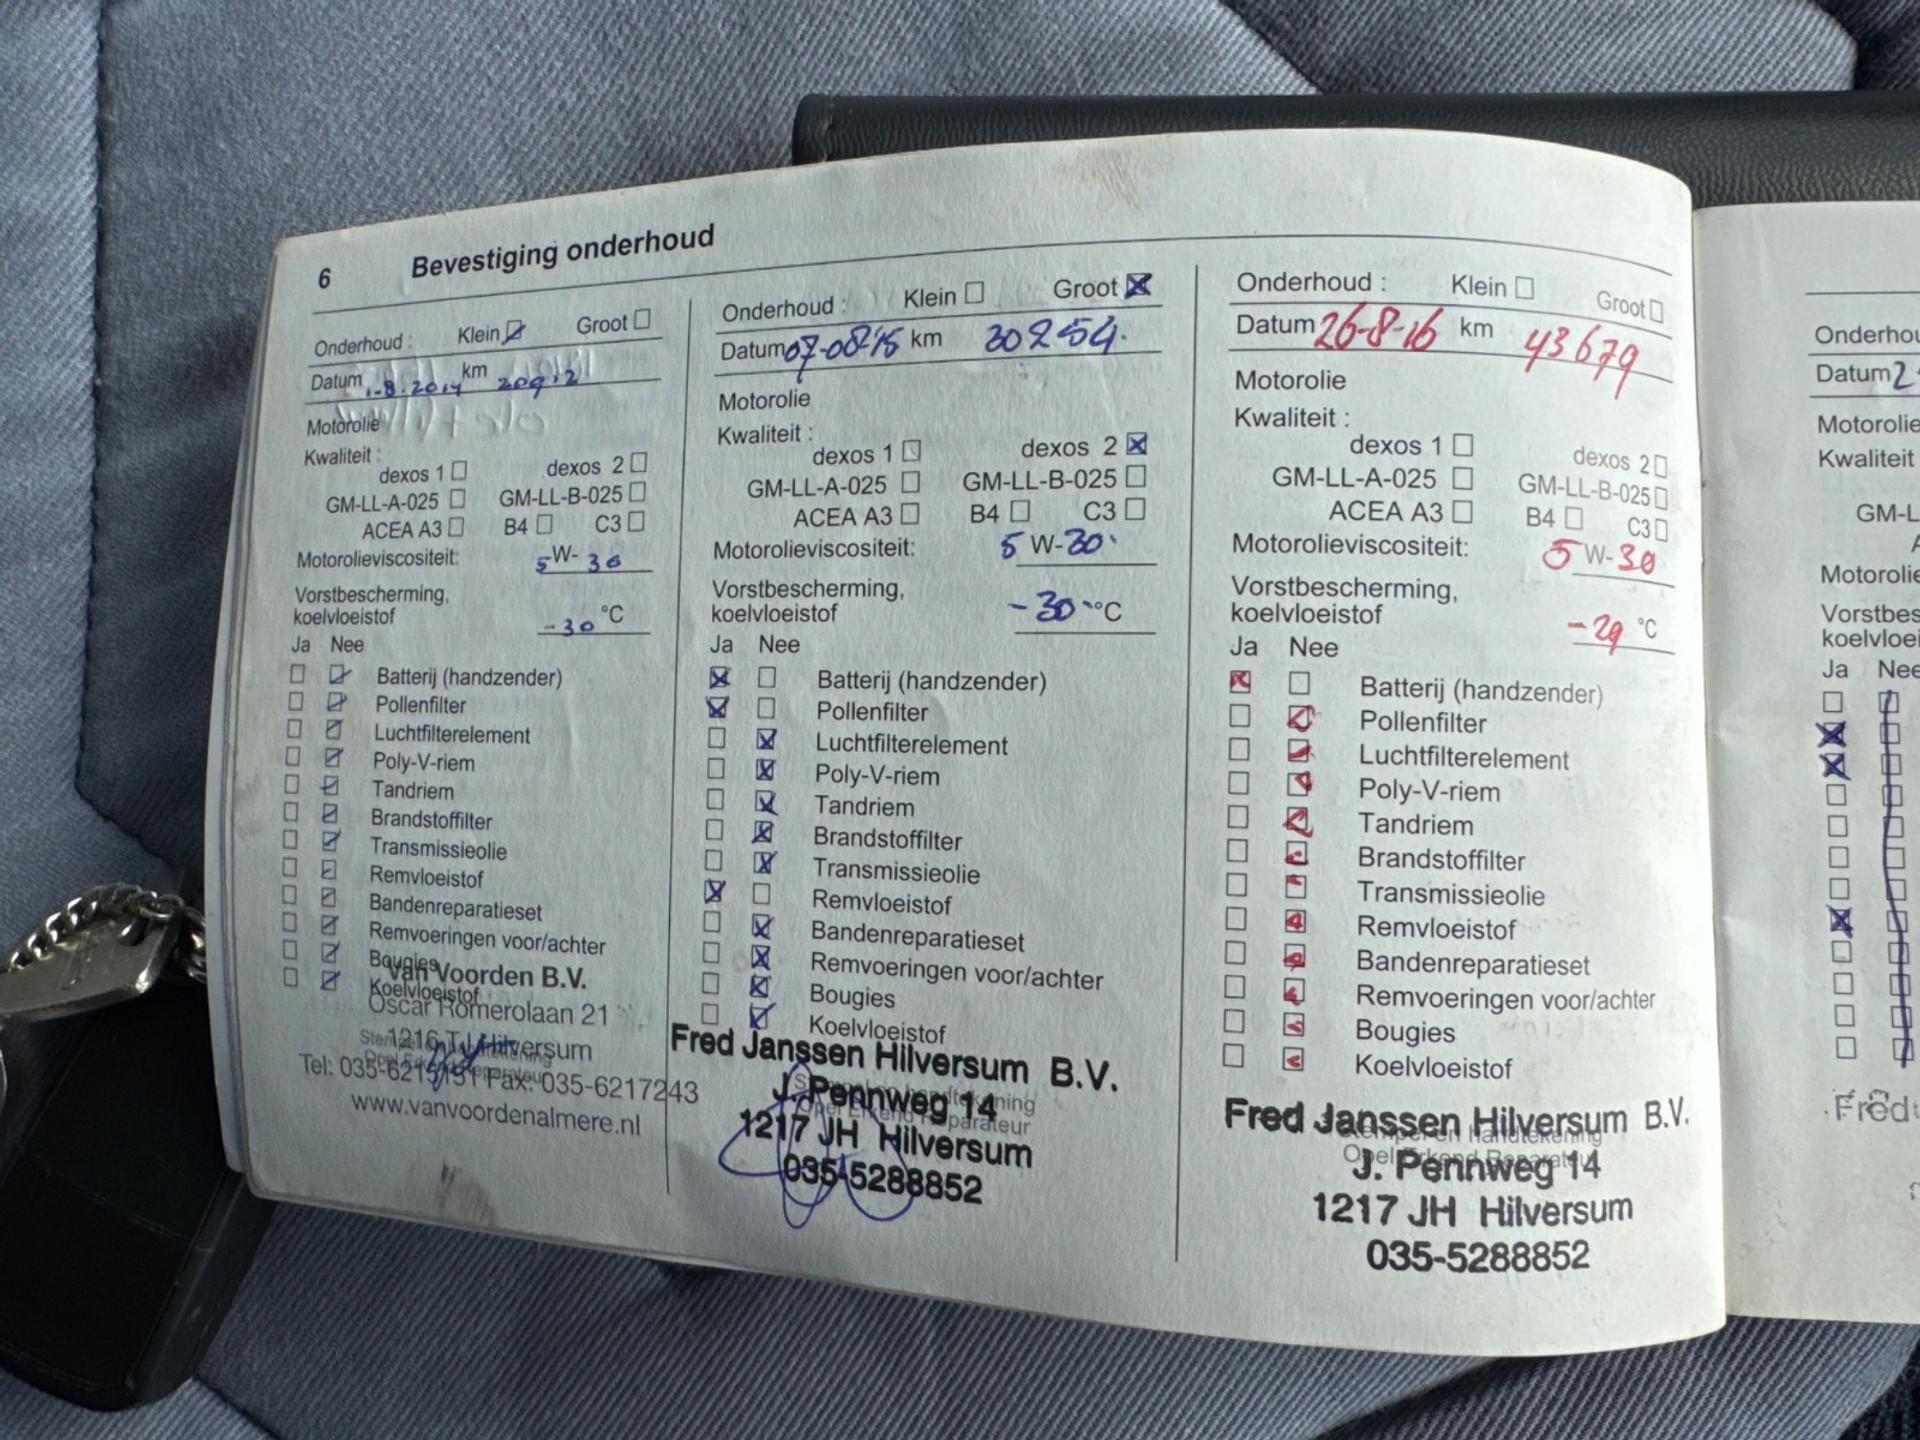 6 Bevestiging onderhoud
Onderhoud : Klein Groot
Datum 1-8-2014 km 20912
Motorolie
Kwaliteit :
dexos 1 dexos 2
GM-LL-A-025 GM-LL-B-025
ACEA A3 B4 C3
Motorolieviscositeit: 5 W- 30
Vorstbescherming,
koelvloeistof -30 °C
Ja Nee
Batterij (handzender)
Pollenfilter
Luchtfilterelement
Poly-V-riem
Tandriem
Brandstoffilter
Transmissieolie
Remvloeistof
Bandenreparatieset
Remvoeringen voor/achter
Bougies
Koelvloeistof
Van Voorden B.V.
Oscar Romerolaan 21
1216 TJ Hilversum
Tel: 035-6215151 Fax: 035-6217243
www.vanvoordenalmere.nl
Onderhoud : Klein Groot
Datum 07-08-'15 km 30254.
Motorolie
Kwaliteit :
dexos 1 dexos 2
GM-LL-A-025 GM-LL-B-025
ACEA A3 B4 C3
Motorolieviscositeit: 5 W-30
Vorstbescherming,
koelvloeistof -30 °C
Ja Nee
Batterij (handzender)
Pollenfilter
Luchtfilterelement
Poly-V-riem
Tandriem
Brandstoffilter
Transmissieolie
Remvloeistof
Bandenreparatieset
Remvoeringen voor/achter
Bougies
Koelvloeistof
Stempel en handtekening
Opel Erkend Reparateur
Fred Janssen Hilversum B.V.
J. Pennweg 14
1217 JH Hilversum
035-5288852
Onderhoud : Klein Groot
Datum 26-8-16 km 43679
Motorolie
Kwaliteit :
dexos 1 dexos 2
GM-LL-A-025 GM-LL-B-025
ACEA A3 B4 C3
Motorolieviscositeit: 5 W-30
Vorstbescherming,
koelvloeistof -29 °C
Ja Nee
Batterij (handzender)
Pollenfilter
Luchtfilterelement
Poly-V-riem
Tandriem
Brandstoffilter
Transmissieolie
Remvloeistof
Bandenreparatieset
Remvoeringen voor/achter
Bougies
Koelvloeistof
Stempel en handtekening
Opel Erkend Reparateur
Fred Janssen Hilversum B.V.
J. Pennweg 14
1217 JH Hilversum
035-5288852
Onderhou
Datum 2
Motorolie
Kwaliteit
GM-L
Motorolie
Vorstbes
koelvloei
Ja Nee
Fred